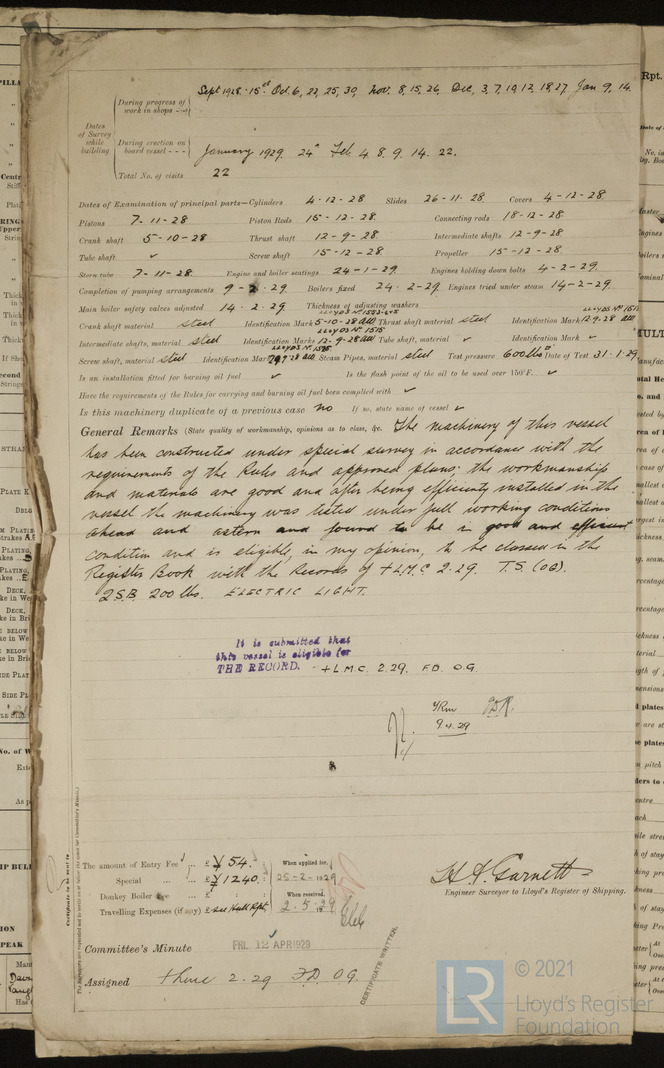 Sept 1928. 15th Oct. 6, 22, 25, 30, Nov. 8, 15, 26, Dec. 3, 7, 10, 12, 18, 27 Jan 9, 14.
During progress of work in shops - -
Dates of Survey while building
During erection on board vessel - - -
January 1929. 24th Feb 4. 8. 9. 14. 22.
Total No. of visits 22
Dates of Examination of principal parts—Cylinders 4-12-28 Slides 26-11-28 Covers 4-12-28
Pistons 7-11-28 Piston Rods 15-12-28 Connecting rods 18-12-28
Crank shaft 5-10-28 Thrust shaft 12-9-28 Intermediate shafts 12-9-28
Tube shaft ✓ Screw shaft 15-12-28 Propeller 15-12-28
Stern tube 7-11-28 Engine and boiler seatings 24-1-29 Engines holding down bolts 4-2-29
Completion of pumping arrangements 9-2-29 Boilers fixed 24-2-29 Engines tried under steam 14-2-29
Main boiler safety valves adjusted 14-2-29 Thickness of adjusting washers
Crank shaft material steel Identification Mark 5-10-28 Thrust shaft material steel Identification Mark 12-9-28
Intermediate shafts, material steel Identification Marks LLOYDS No 1575 12-9-28 Tube shaft, material ✓ Identification Mark ✓
Screw shaft, material steel Identification Mark Steam Pipes, material steel Test pressure 600 lbs Date of Test 31-1-29
Is an installation fitted for burning oil fuel ✓ Is the flash point of the oil to be used over 150°F. ✓
Have the requirements of the Rules for carrying and burning oil fuel been complied with ✓
Is this machinery duplicate of a previous case no If so, state name of vessel ✓
General Remarks (State quality of workmanship, opinions as to class, &c. The machinery of this vessel
has been constructed under special survey in accordance with the
requirements of the Rules and approved plans: the workmanship
and materials are good and after being efficiently installed in the
vessel the machinery was tested under full working conditions
ahead and astern and found to be in good and efficient
condition and is eligible, in my opinion, to be classed in the
Register Book with the Records of +L.M.C 2.29. T.S. (OG).
2 S.B. 200 lbs. ELECTRIC LIGHT.
It is submitted that
this vessel is eligible for
THE RECORD. + L.M.C. 2.29. F.D. O.G.
9.4.29
The amount of Entry Fee ... £ ¥ 54.
When applied for,
Special ... £ ¥ 1240.
25-2-1929
Donkey Boiler Fee ... £
When received,
Travelling Expenses (if any) £ see Hull Rpt.
2.5.29
H A Garnett
Engineer Surveyor to Lloyd's Register of Shipping.
Committee's Minute FRI. 12 APR 1929
Assigned + L.M.C 2.29 F.D. O.G.
CERTIFICATE WRITTEN.
© 2021
LR
Lloyd's Register
Foundation